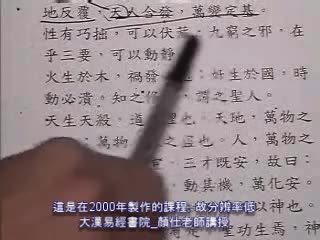 地反覆。天人合發，萬變定基。
性有巧拙，可以伏藏。九竅之邪，在
乎三要，可以動靜
火生於木，禍發 奸生於國，時
動必潰。知之修 謂之聖人。
天生天殺，道 理也。天地，萬物之
萬物 之盜也。人，萬物之
宜，三才既安，故曰：
動其機，萬化安。
以神也。
功生焉，神
這是在2000年製作的課程，故分辨率低
大漢易經書院_顏仕老師講授